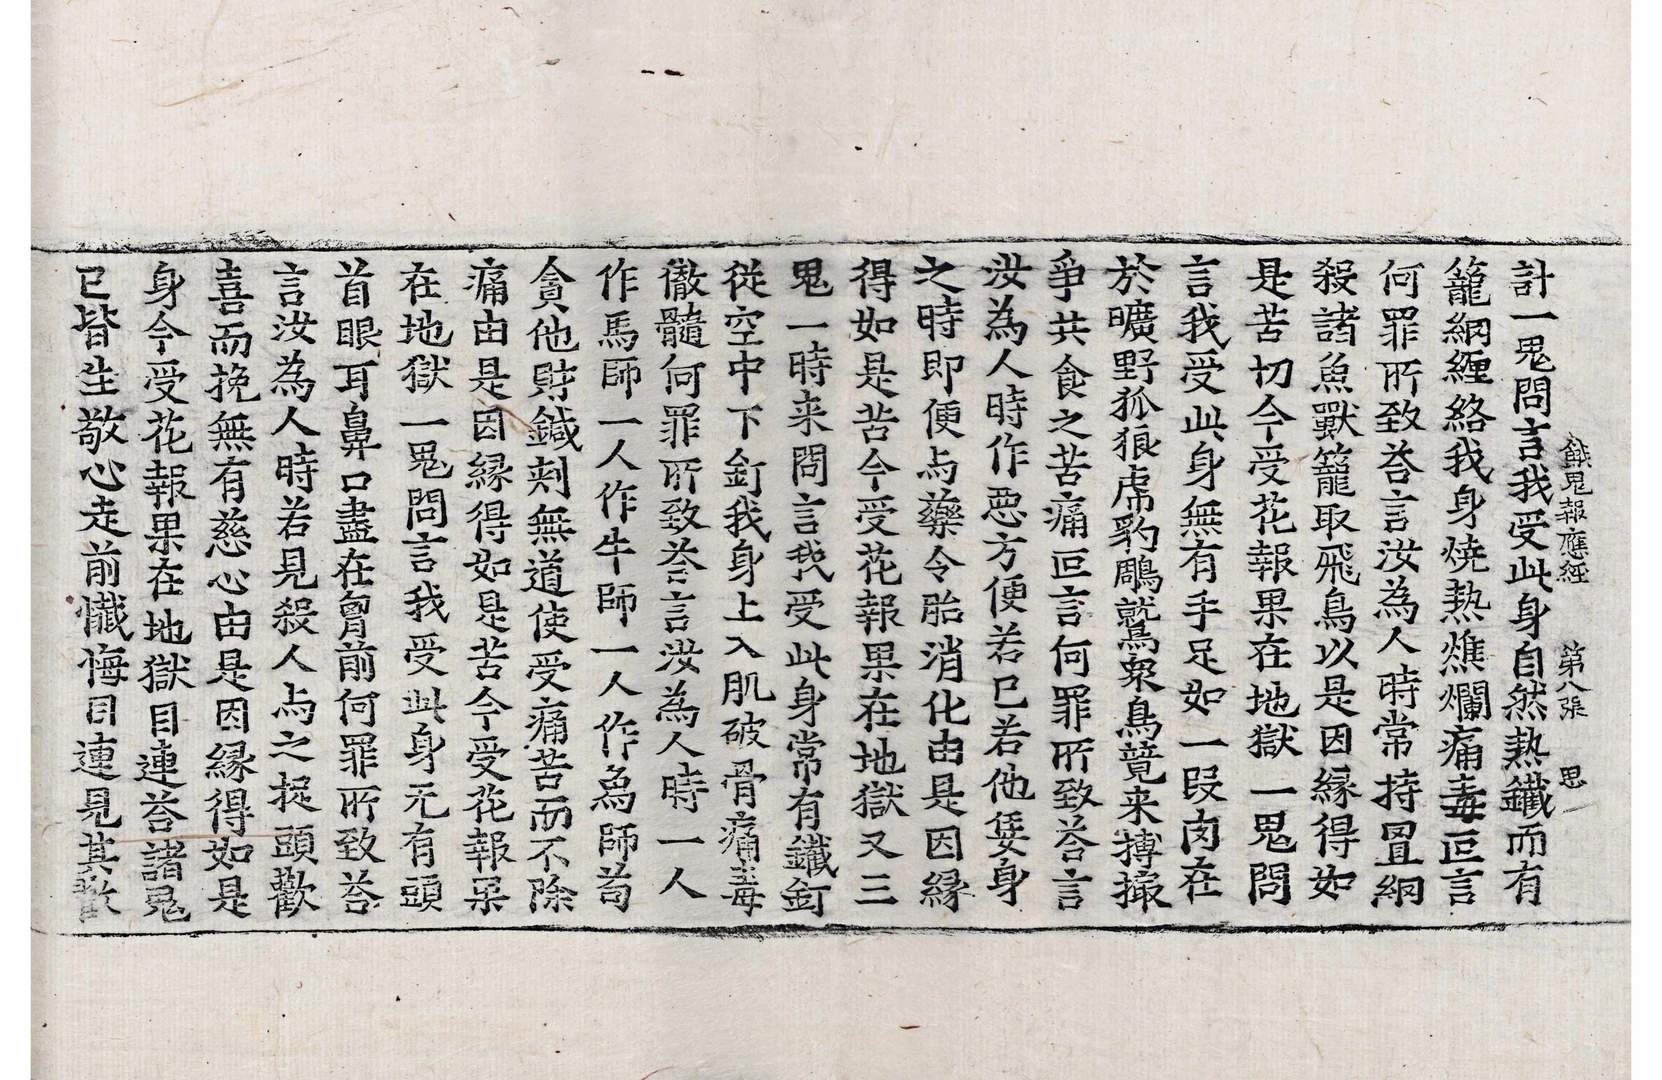 餓鬼報應經 第八張 思
計一鬼問言我受此身自然熱鐵而有
籠網纏絡我身燒熱燋爛痛毒叵言
何罪所致荅言汝為人時常持罝網
殺諸魚獸籠取飛鳥以是因縁得如
是苦切今受花報果在地獄一鬼問
言我受此身無有手足如一段肉在
於曠野狐狼虎豹鵰鷲衆鳥競来搏撮
爭共食之苦痛叵言何罪所致荅言
汝為人時作惡方便若已若他隻身
之時即便与藥令胎消化由是因縁
得如是苦今受花報果在地獄又三
鬼一時来問言我受此身常有鐵釘
從空中下釘我身上入肌破骨痛毒
徹髓何罪所致荅言汝為人時一人
作馬師一人作牛師一人作為師苟
貪他財鍼刾無道使受痛苦而不除
痛由是因縁得如是苦今受花報果
在地獄一鬼問言我受此身无有頭
首眼耳鼻口盡在胷前何罪所致荅
言汝為人時若見殺人与之捉頭歡
喜而挽無有慈心由是因縁得如是
身今受花報果在地獄目連荅諸鬼
已皆生敬心走前懺悔目連見其歡